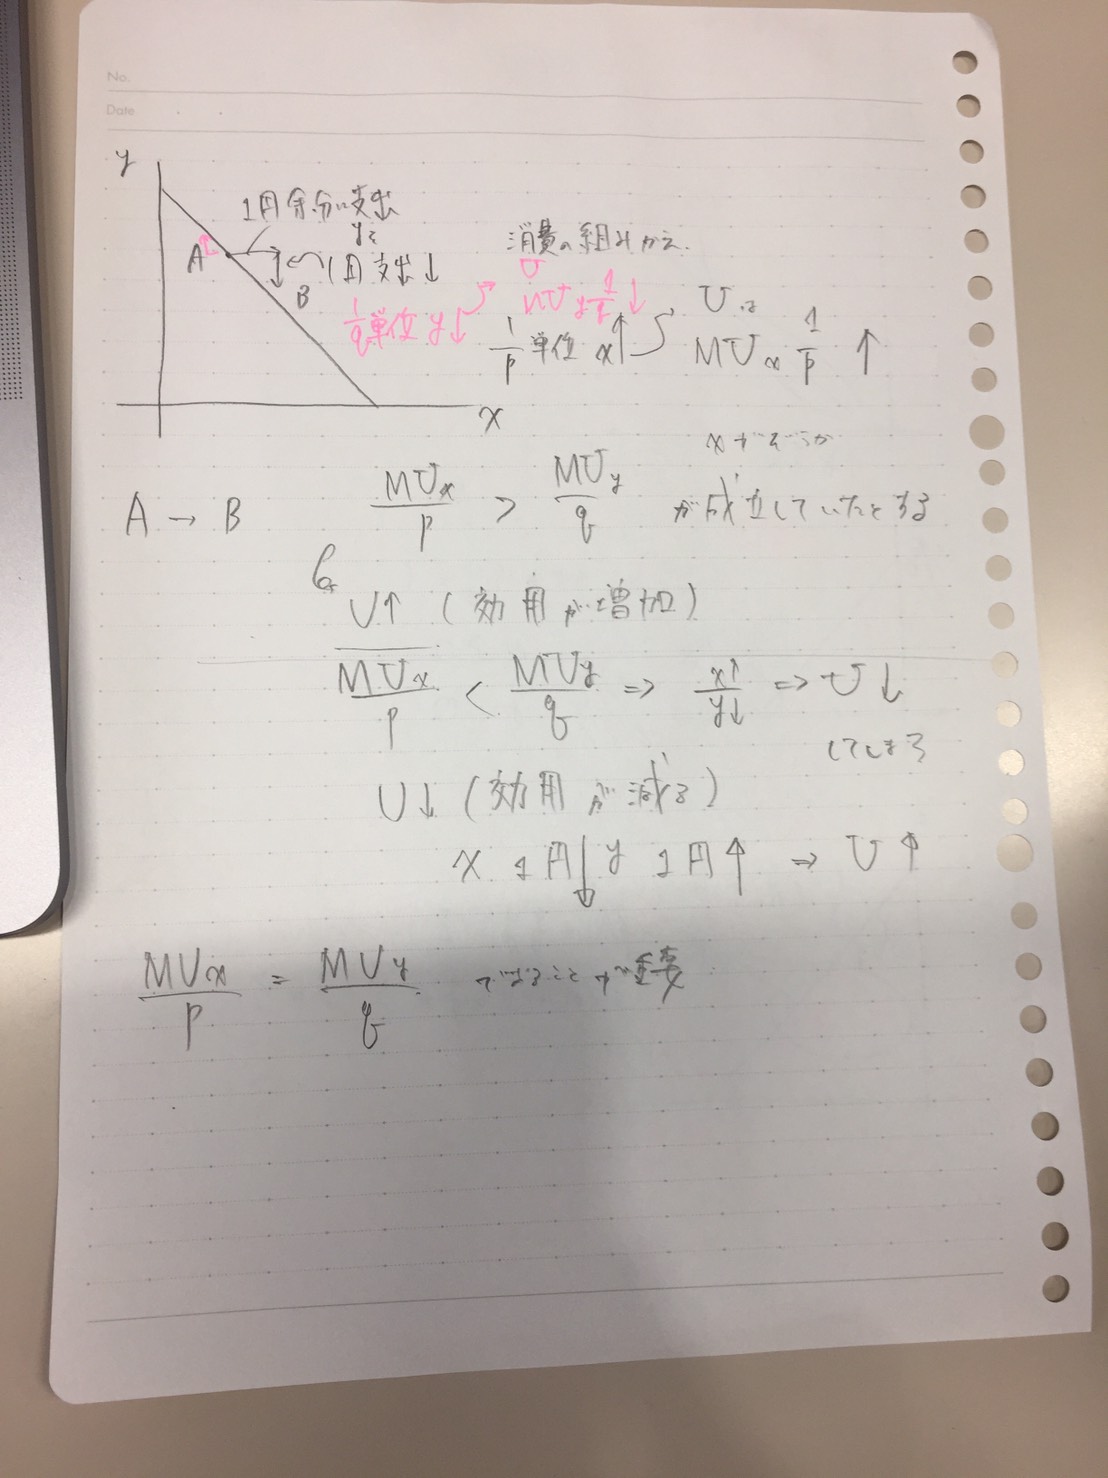 No.
Date
y
1円余分に支出
yを
A
1円支出↓
B
消費の組みかえ.
U
1/q単位 y↓
MUy 1/q ↓
1/p 単位 x↑
Uは
MUx 1/p ↑
x
A → B
MUx/p > MUy/q
が成立していたとする
U↑ (効用が増加)
MUx/p < MUy/q ⇒ x↑/y↓ ⇒ U↓
してしまう
U↓ (効用が減る)
x 1円↓ y 1円↑ ⇒ U↑
MUx/p = MUy/q であることが重要